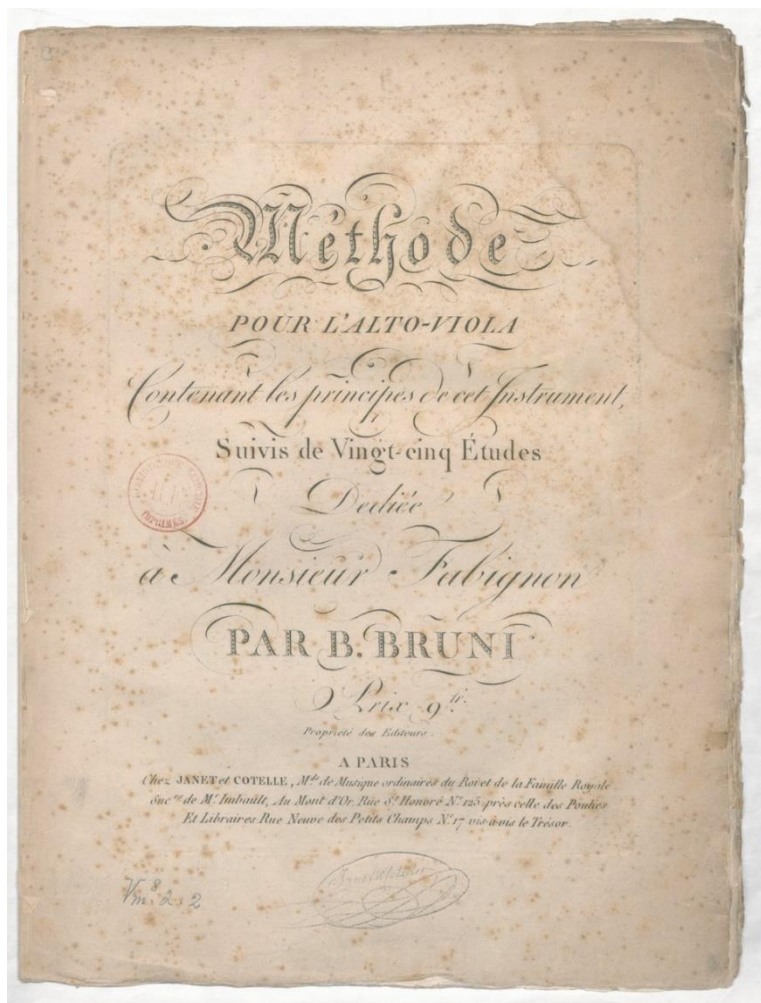 Méthode
POUR L'ALTO-VIOLA
Contenant les principes de cet Instrument,
Suivis de Vingt-cinq Études
Dediée
à Monsieur Fabignon
PAR B. BRUNI
Prix 9.tt
Propriété des Editeurs.
A PARIS
Chez JANET et COTELLE, M.ds de Musique ordinaires du Roi et de la Famille Royale
Suc.rs de M.r Imbault, Au Mont d'Or, Rue S.t Honoré N.o 125 près celle des Poulies
Et Libraires Rue Neuve des Petits Champs N.o 17 vis-à-vis le Trésor.
Vm.8 d. 2